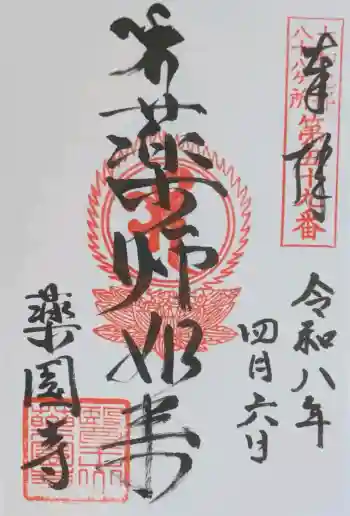 奉拝
八十八ケ所
第五十番
令和八年
四月六日
薬師如来
薬園寺